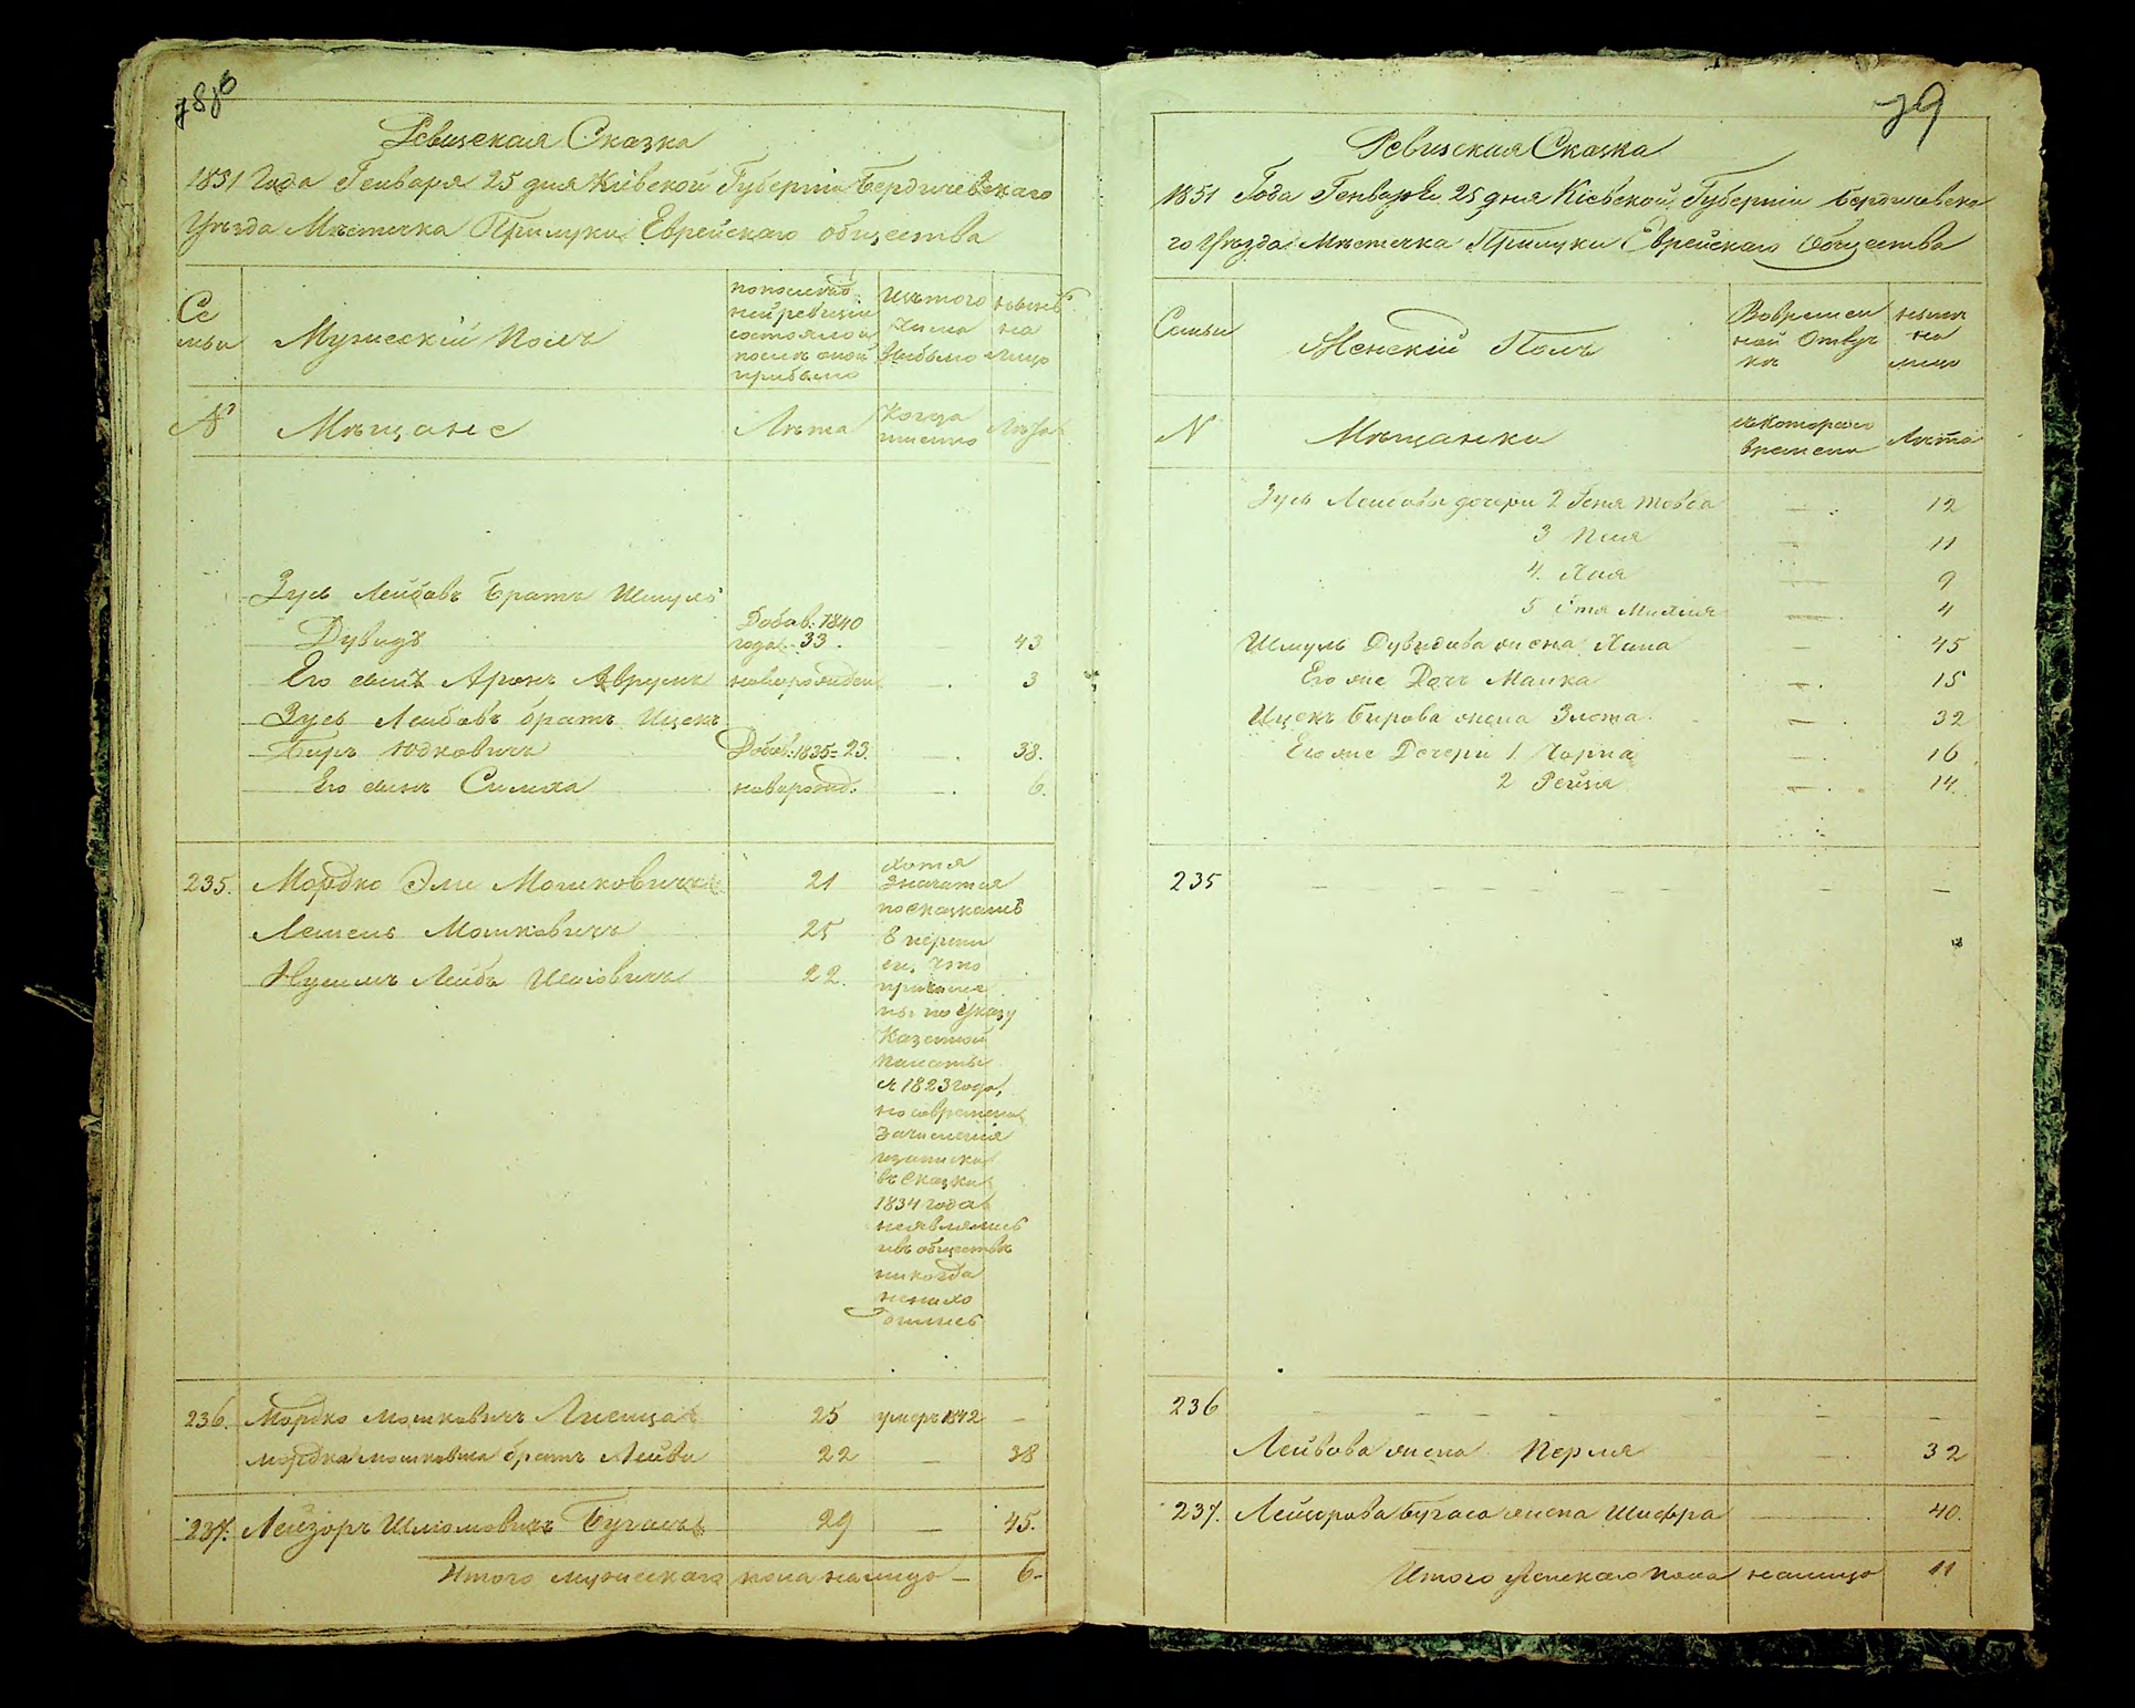 Ревизская Сказка
1851 Года Генваря 25 дня Кіевской Губерніи Бердичевскаго
Уѣзда Мѣстечка Прилуки Еврейскаго общества
Се
мьи
Мужескій Полъ
по послѣд
ней ревизіи
состояло и
послѣ оной
прибыло
Изъ того
числа
выбыло
нынѣ
на
лицо
№
Мѣщане
Лѣта
Когда
именно
Лѣта
Зусь Лейбовъ братъ Шмуль
Дувидъ
Добав. 1840
года 33
43
Его сынъ Аронъ Аврумъ
новорожден
3
Зусь Лейбовъ братъ Ицекъ
Беръ Юдковичъ
Добав. 1835 - 23.
38.
Его сынъ Симха
новорожд.
6.
235. Мордко Эли Мошковичъ 21
Лемель Мошковичъ 25
Нухимъ Лейба 22.
хотя
значатся
по сказкамъ
8 перепи
си, что
ны по Указу
Казенной
Палаты
съ 1823 года,
но со времени
зачисленія
и записки
въ сказки
1834 года
неявлялись
и въ обществѣ
никогда
ненахо
дились
236. Мордко Мошковичъ 25 умеръ 1842 —
Мордка Мошковича братъ Лейба 22 — 38
237. Лейзоръ Шліомовичъ Бугачъ 29 — 45.
Итого мужескаго пола налицо — 6 -
79
Ревизская Сказка
1851 Года Генваря 25 дня Кіевской Губерніи Бердичевска
го Уѣзда Мѣстечка Прилуки Еврейскаго Общества
Семьи
Женскій Полъ
Во времен
ной отлуч
кѣ
нынѣ
на
лицо
N
Мѣщанки
съ котораго
времени
Лѣта
Зуся Лейбова дочери 2 Геня Товба — 12
3 — 11
4. Хая — 9
5 — 4
Шмуль Дувидова жена Хана — 45
Его же Дочь Малка — 15
Ицекъ Берова жена Злота — 32
Его же Дочери 1 Чарна — 16
2 Рейзя — 14.
235 — — — — — — —
236 — — — — — —
Лейбова жена Перля — 32
237. Лейзорова Бугача жена Шифра — 40.
Итого женскаго пола налицо 11